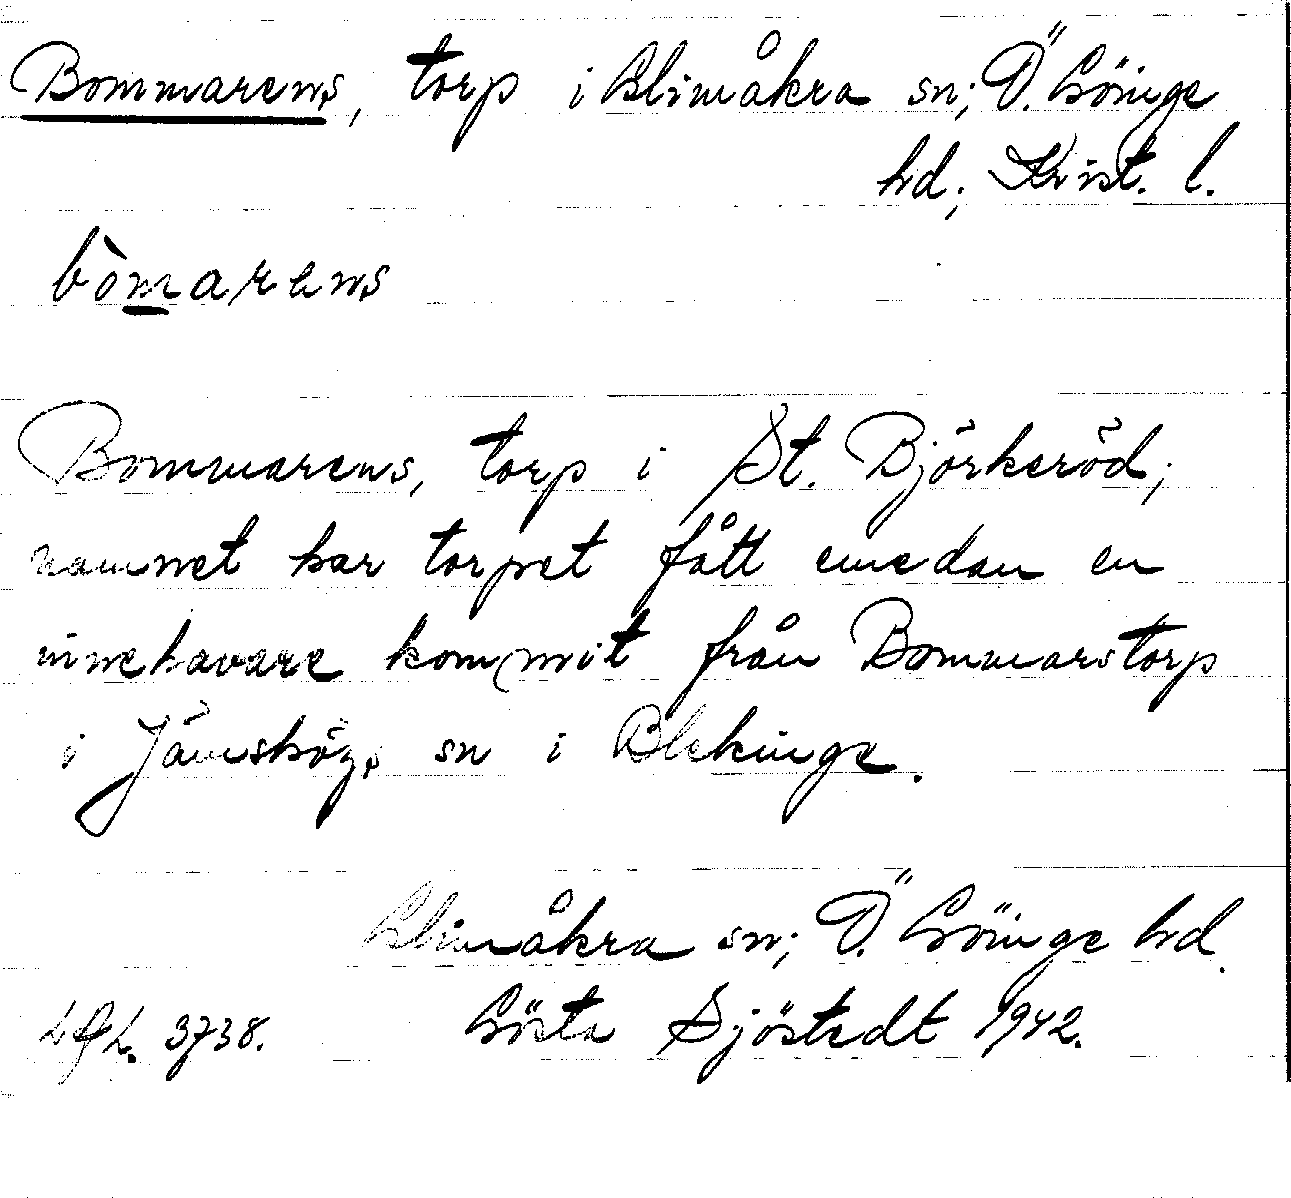 Bommarens, torp i Glimåkra sn; Ö. Göinge
hd; Krist. l.
bòmarens
Bommarens, torp i St. Björkeröd;
namnet har torpet fått emedan en
innehavare kommit från Bommarstorp
i Jämshögs sn i Blekinge.
Glimåkra sn; Ö. Göinge hd.
3738. Gösta Sjöstedt 1942.